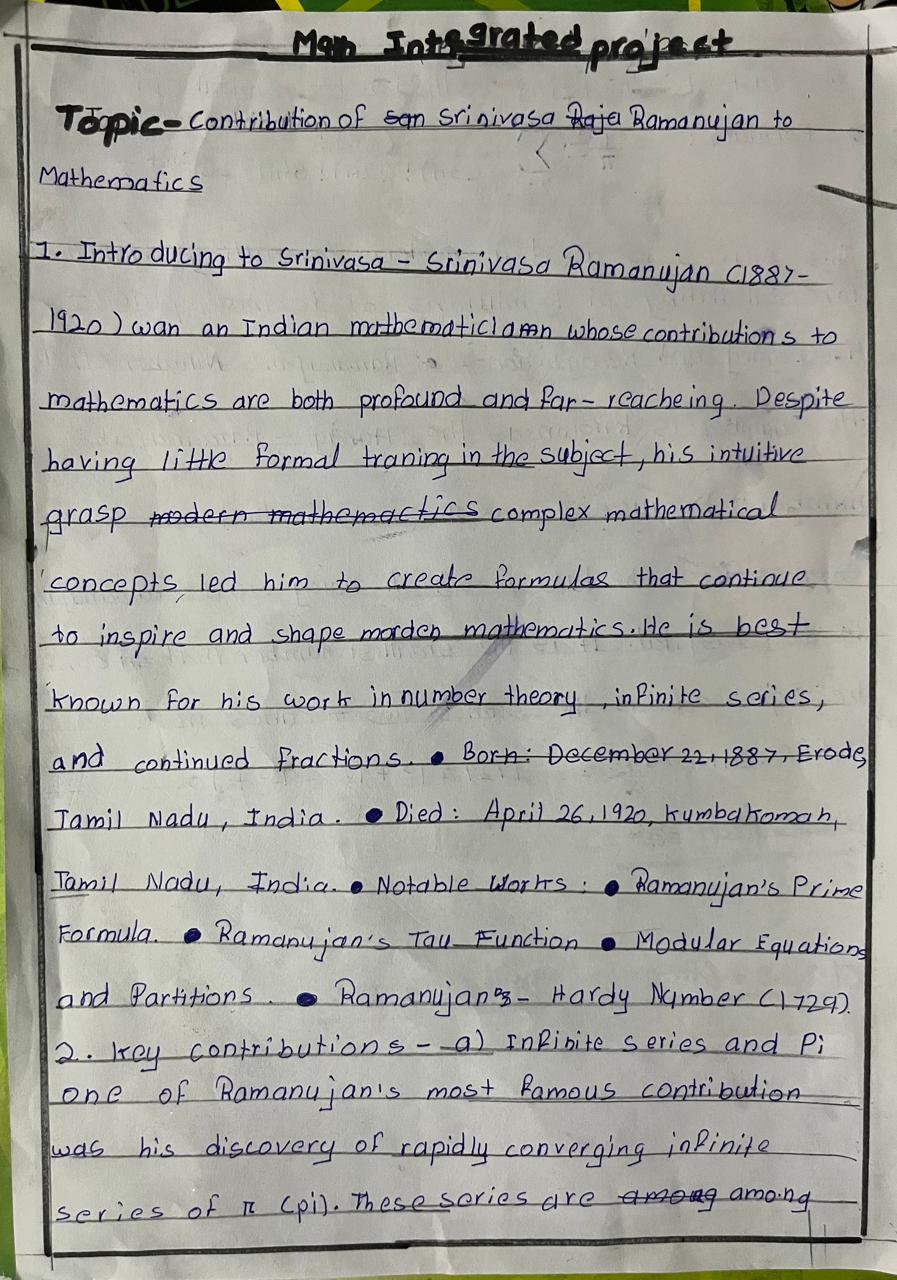 Man Integrated project
Topic- Contribution of san Srinivasa Raja Ramanujan to
Mathematics
1. Introducing to Srinivasa - Srinivasa Ramanujan (1887-
1920) wan an Indian mathematiciamn whose contributions to
mathematics are both profound and far- reacheing. Despite
having little formal traning in the subject, his intuitive
grasp modern mathemactics complex mathematical
concepts, led him to create formulas that continue
to inspire and shape morden mathematics. He is best
known for his work in number theory, infinite series,
and continued fractions. • Born: December 22, 1887, Erode,
Tamil Nadu, India. • Died: April 26, 1920, Kumbakomah,
Tamil Nadu, India. • Notable Works: • Ramanujan's Prime
Formula. • Ramanujan's Tau Function • Modular Equations
and Partitions. • Ramanujan's- Hardy Nymber (1729).
2. Key contributions - a) Infinite series and Pi
one of Ramanujan's most famous contribution
was his discovery of rapidly converging infinite
series of π (pi). These series are among among